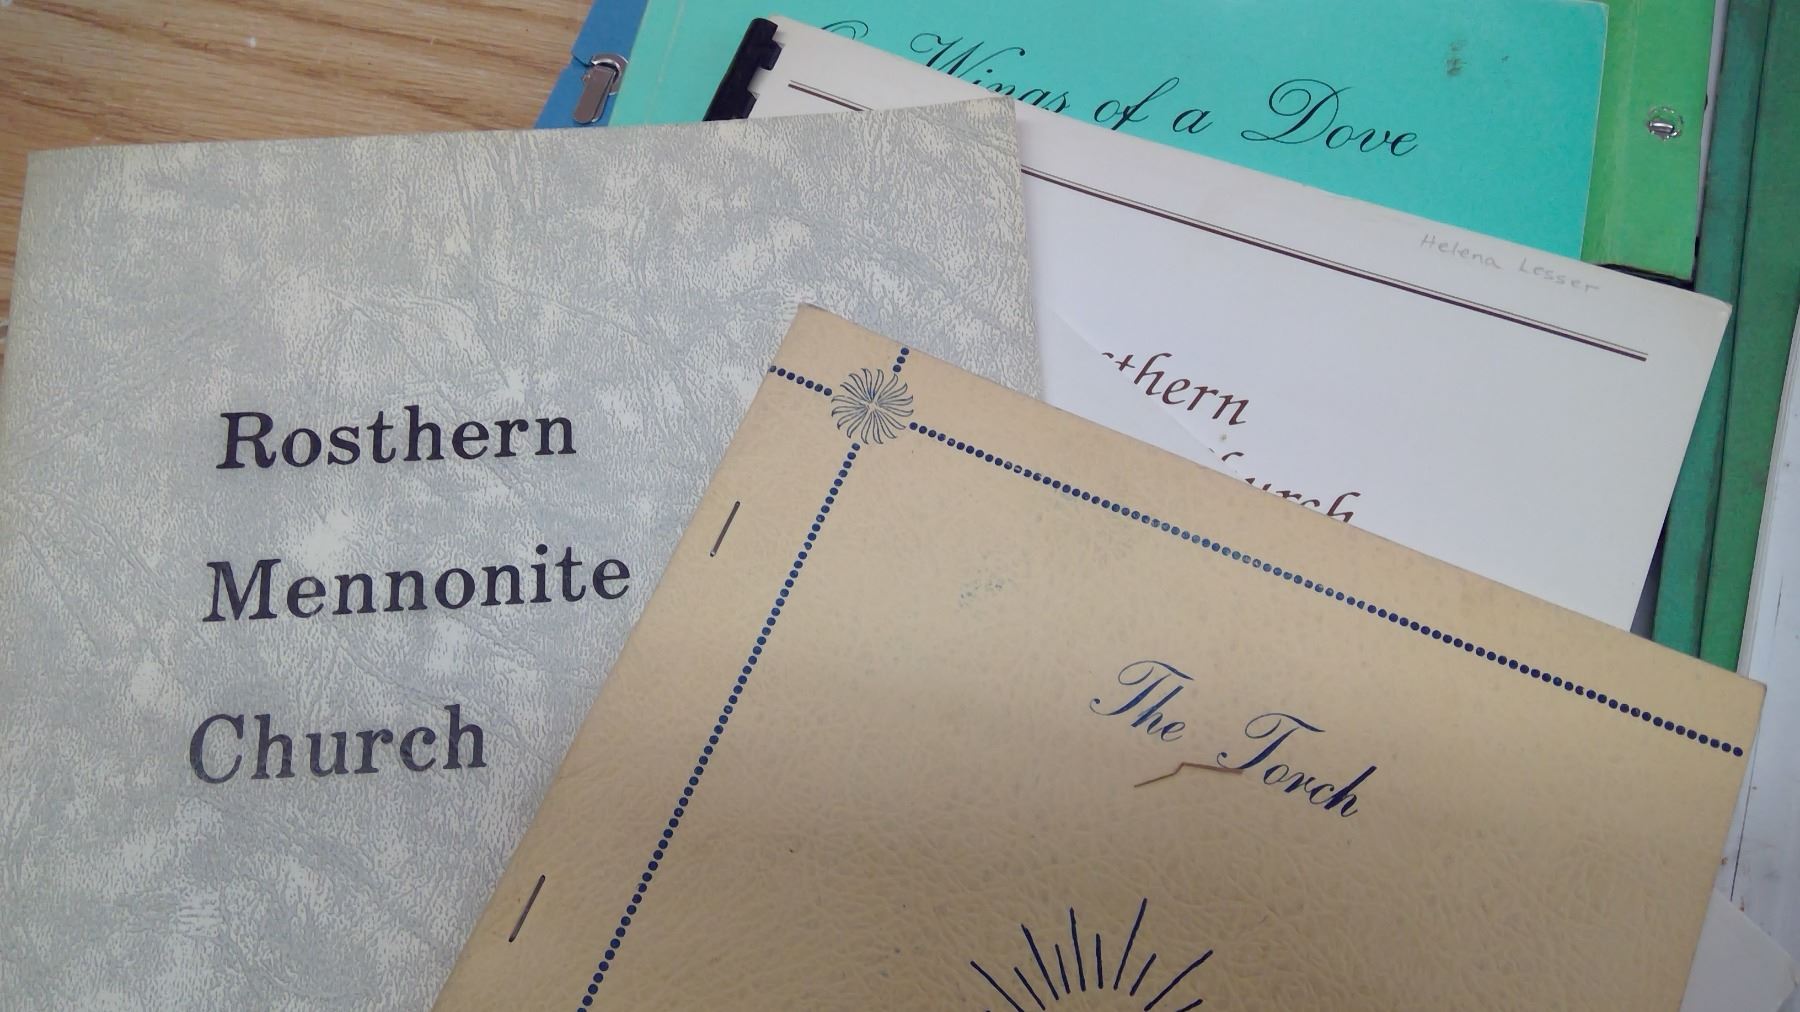 Wings of a Dove
Helena Lesser
thern
urch
Rosthern
Mennonite
Church
The Torch